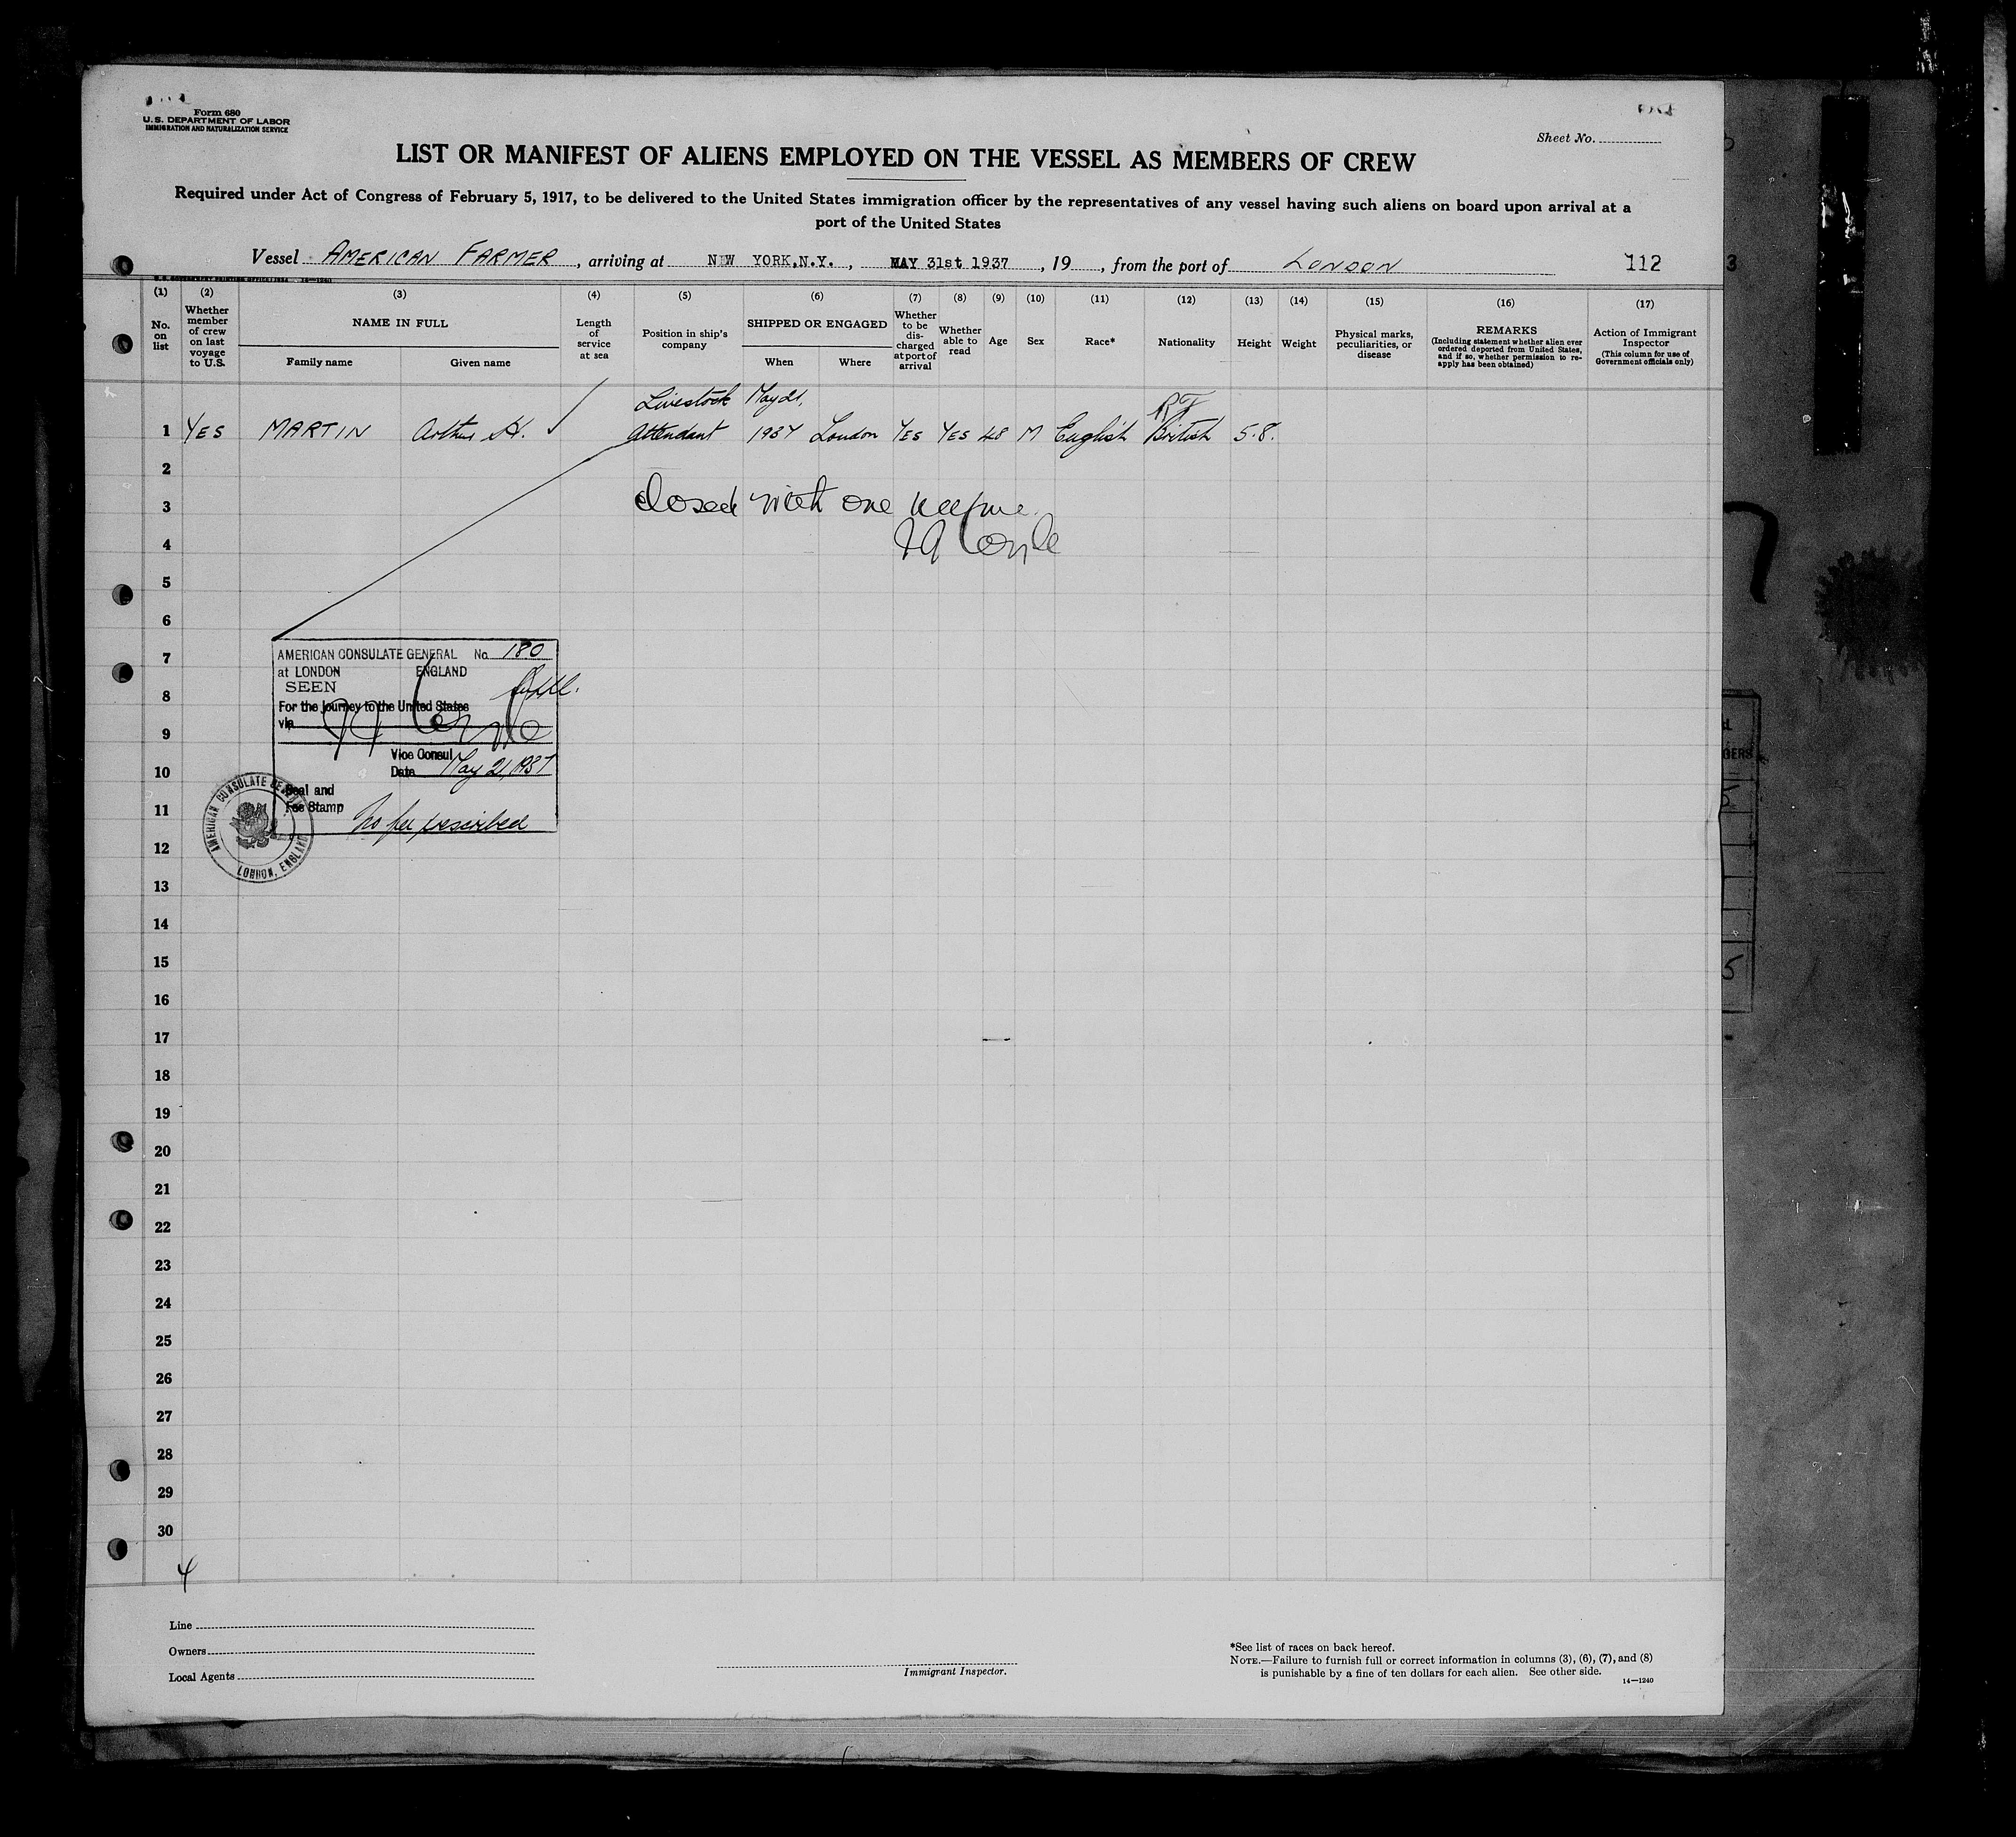 Form 680
U.S. DEPARTMENT OF LABOR
IMMIGRATION AND NATURALIZATION SERVICE
Sheet No.
LIST OR MANIFEST OF ALIENS EMPLOYED ON THE VESSEL AS MEMBERS OF CREW
Required under Act of Congress of February 5, 1917, to be delivered to the United States immigration officer by the representatives of any vessel having such aliens on board upon arrival at a
port of the United States
Vessel AMERICAN FARMER, arriving at NEW YORK,N.Y., MAY 31st 1937, 19, from the port of LONDON 112
(1) (2) (3) (4) (5) (6) (7) (8) (9) (10) (11) (12) (13) (14) (15) (16) (17)
No. on list
Whether member of crew on last voyage to U.S.
NAME IN FULL
Family name Given name
Length of service at sea
Position in ship's company
SHIPPED OR ENGAGED
When Where
Whether to be discharged at port of arrival
Whether able to read
Age
Sex
Race*
Nationality
Height
Weight
Physical marks, peculiarities, or disease
REMARKS
(Including statement whether alien ever ordered deported from United States, and if so, whether permission to re-apply has been obtained)
Action of Immigrant Inspector
(This column for use of Government officials only)
Livestock May 21,
1 YES MARTIN Arthur H. Attendant 1937 London YES YES 48 M English British 5.8.
2
3 closed with one name
4
5
6
7
8
9
10
11
12
13
14
15
16
17
18
19
20
21
22
23
24
25
26
27
28
29
30
AMERICAN CONSULATE GENERAL No. 180
at LONDON ENGLAND
SEEN
For the journey to the United States
via
Vice Consul
Date May 21, 1937
Seal and
Fee Stamp
No fee prescribed
AMERICAN CONSULATE GENERAL
LONDON, ENGLAND
4
Line
Owners
Local Agents
Immigrant Inspector.
*See list of races on back hereof.
NOTE.—Failure to furnish full or correct information in columns (3), (6), (7), and (8)
is punishable by a fine of ten dollars for each alien. See other side.
14—1240